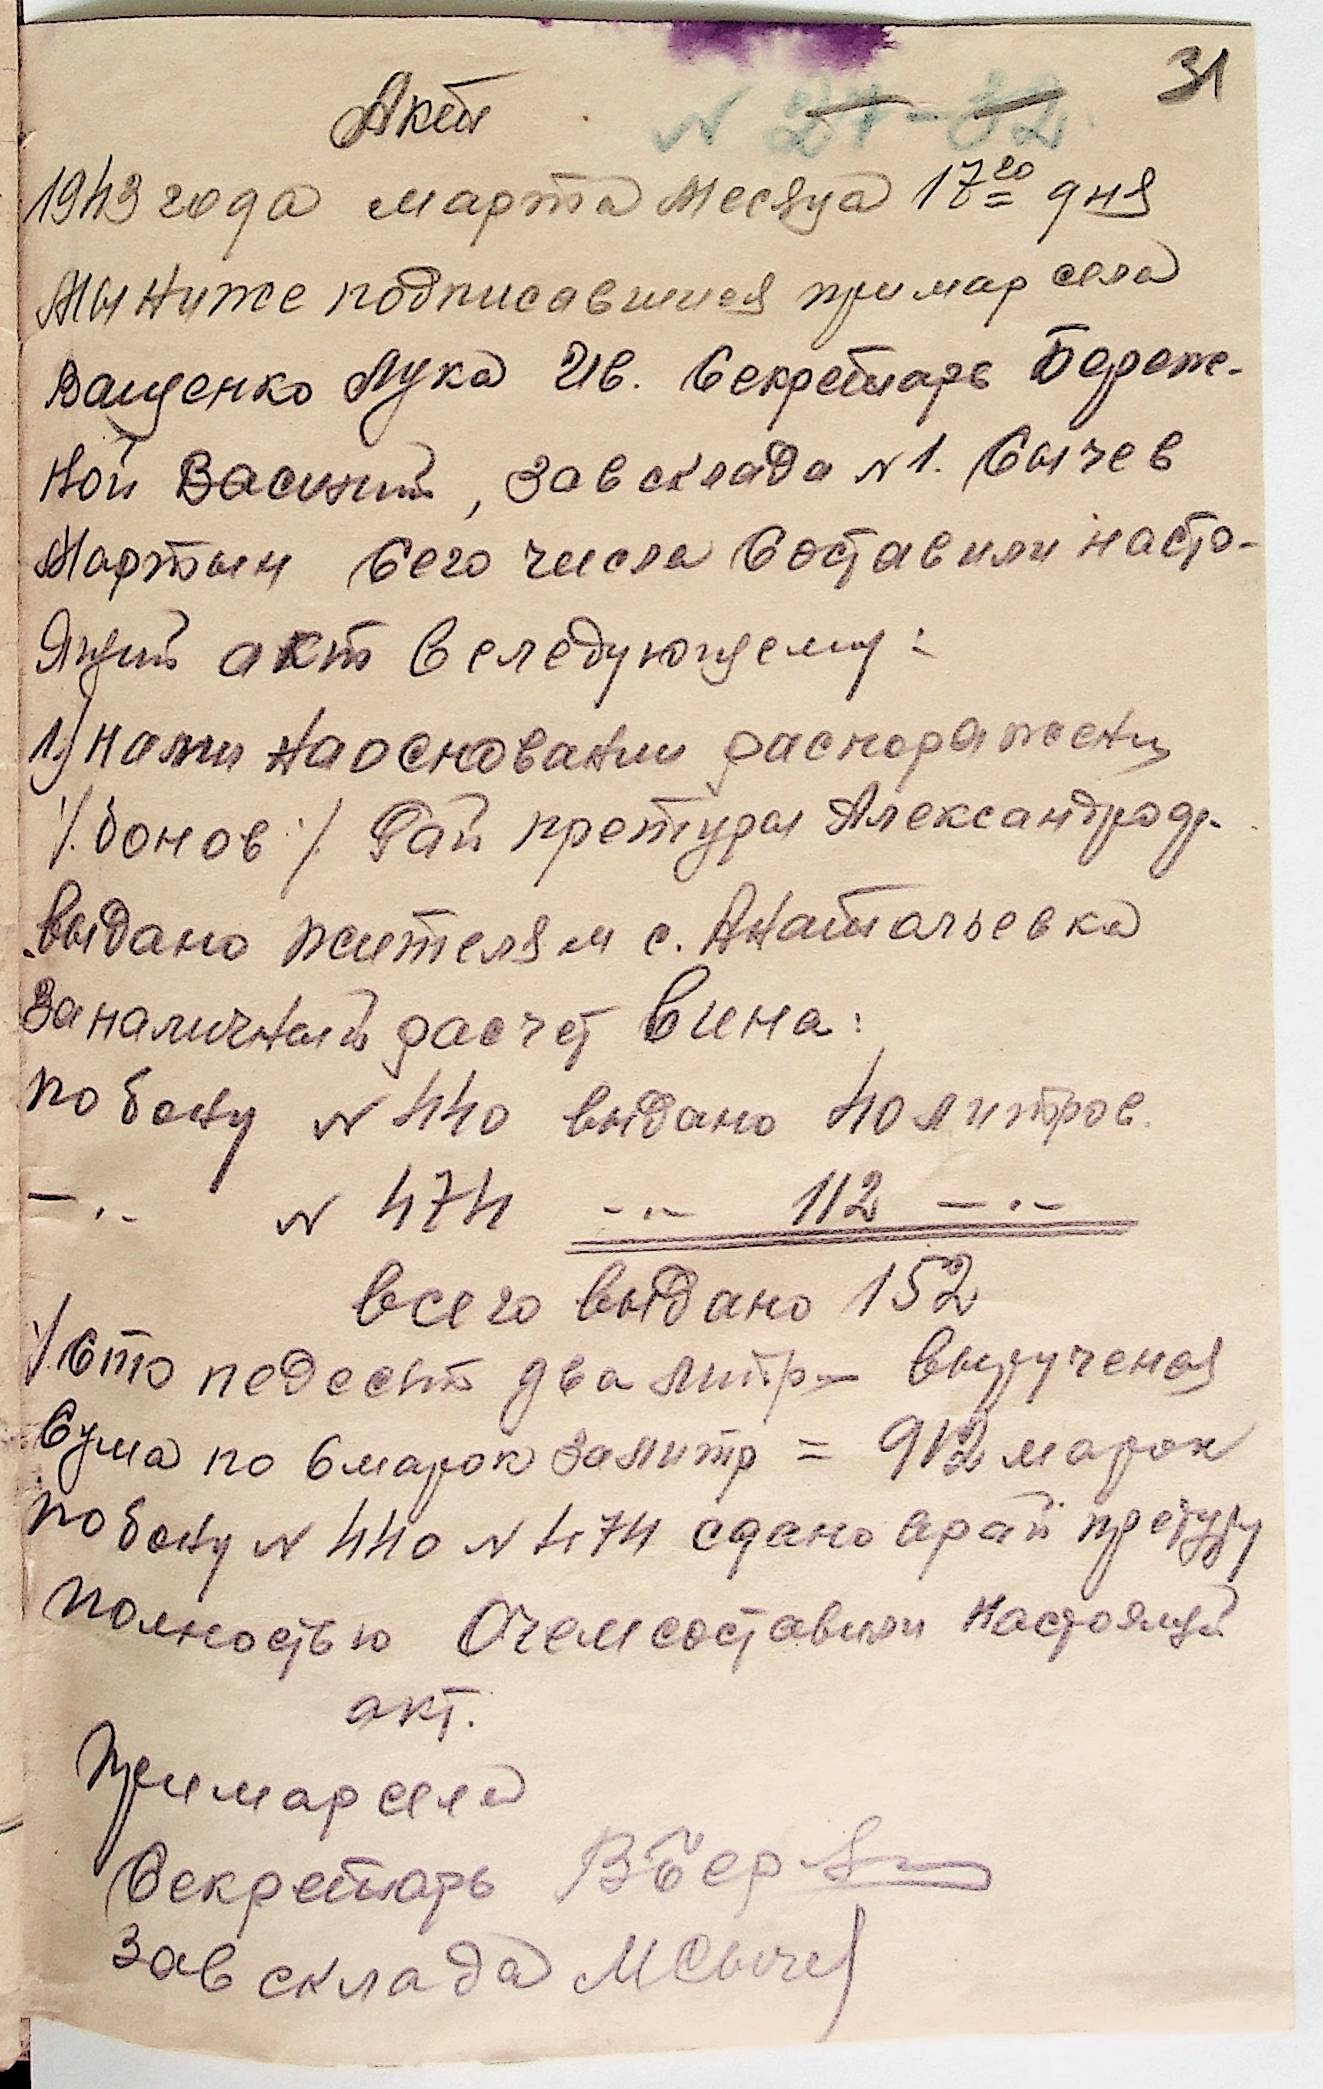 31
Акт N 27-32
1943 года марта месяца 17го дня
Мы ниже подписавшиеся примар села
Ващенко Лука Ив. Секретарь Береж-
ной Василий, зав склада N 1. Сычев
Мартын Сего числа Составили насто-
ящий акт в следующему:
1) нами на основании распоряжени
/.бонов./ Рай претуры Александродр.
выдано жителям с. Анатольевка
за наличный расчет вина:
по бону N 440 выдано 40 литров.
-.- N 474 -.- 112 -.-
всего выдано 152
/.Сто педесят два литр- вырученая
Сума по 6 марок за литр = 912 марок
по бону N 440 N 474 сдано врай претуру
полностью Очем составили настоящий
акт.
Примар села
Секретарь ВБер
Зав склада МСычев